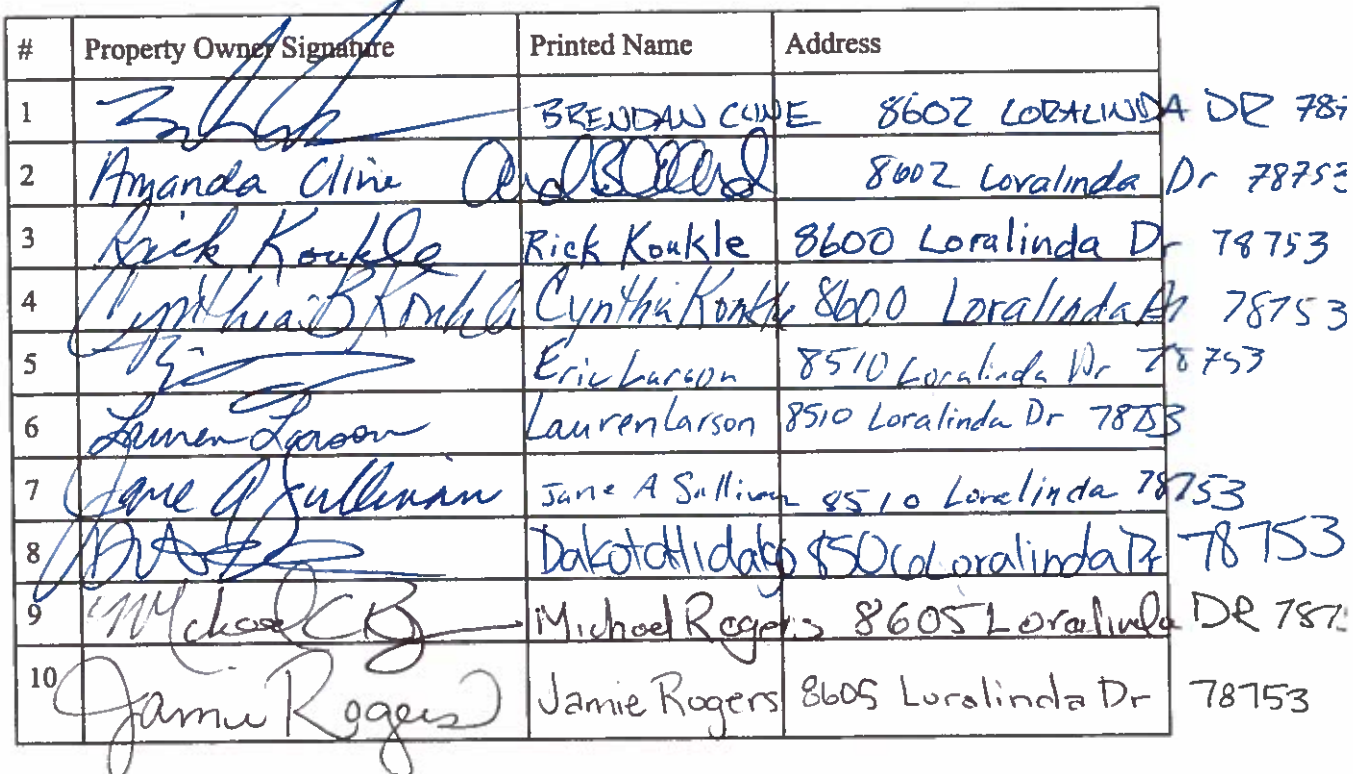 # Property Owner Signature Printed Name Address
1 BRENDAN CLINE 8602 LORALINDA DR 787
2 Amanda Cline 8602 Loralinda Dr 78753
3 Rick Konkle Rick Konkle 8600 Loralinda Dr 78753
4 Cynthia B Konkle Cynthia Konkle 8600 Loralinda Dr 78753
5 Eric Larson 8510 Loralinda Dr 78753
6 Lauren Larson Lauren Larson 8510 Loralinda Dr 78753
7 Jane A Sullivan Jane A Sullivan 8510 Loralinda 78753
8 Dakota Hidalgo 8506 Loralinda Dr 78753
9 Michael Michael Rogers 8605 Loralinda DR 787
10 Jamie Rogers Jamie Rogers 8605 Loralinda Dr 78753